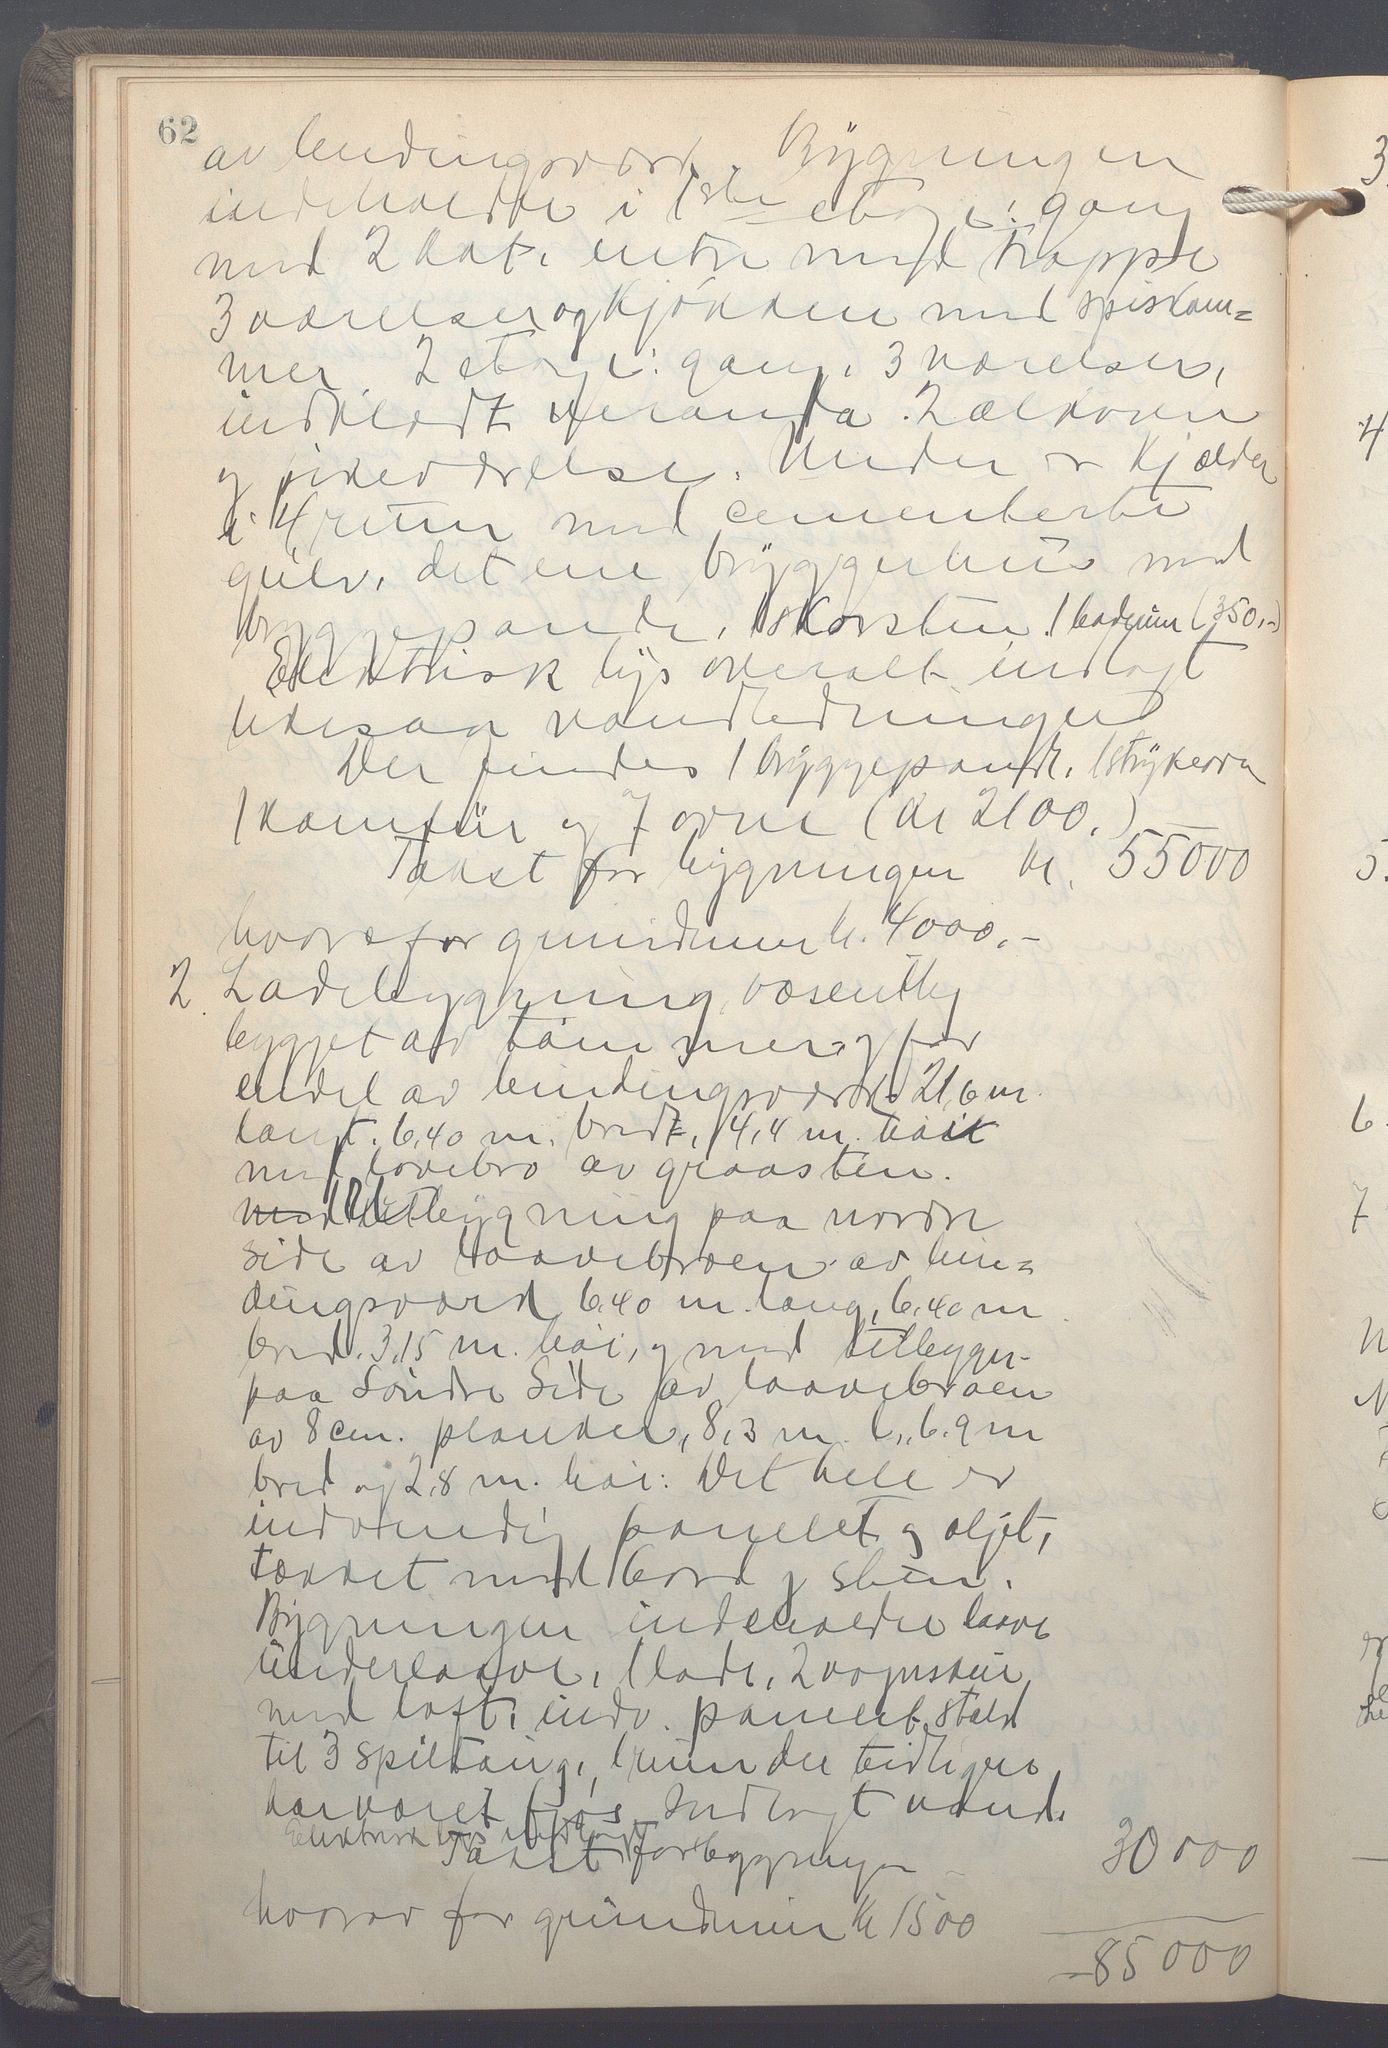 62
av bindingsverk. Bygningen
indeholder i 1ste etage: gang
med 2 kot, entre med trappe
3 værelser og kjøkken med spiskam=
mer. 2 etage: gang, 3 værelser,
indklædt veranda. 2 ælkover
og pikeværelse. Under er kjælder
i 4 rum med cementerte
gulv, det ene bryggerhus med
bryggepande, 1 skorsten. 1 baderum (350,-)
Elektrisk lys overalt indlagt
likesaa vandledninger
Der findes 1 bryggepande, 1 strykeovn
1 komfür og 7 ovne (kr 2100.)
Takst for bygningen kr. 55000
hvorav for grundmur kr. 4000.-
2. Ladebygning, væsentlig
bygget av tømmer og for
endel av bindingsverk. 21,6 m.
langt. 6,40 m. bredt, 4,4 m. høit
med lovebro av graasten.
med tilbygning paa nordre
side av laavebroen av bin=
dingsverk 6.40 m. lang, 6.40 m.
bred, 3,15 m. høi, og med tilbygn-
paa Søndre Side av laavebroen
av 8 cm. planker, 8,3 m. l., 6.9 m
bred og 2.8 m. høi: Det hele er
indvendig panelet og oljet,
tækket med bord og sten.
Bygningen indeholder laave
underlaave, 1 lade, 2 vognskur
med loft, indv. panelert stald
til 3 spiltaug, 1 rum der tidligere
har været fjøs. Indlagt vand.
Elektrisk lys indlagt
Takst for bygningen - 30000
hvorav for grundmur Kr 1500
- 85000
3.
4
5.
6.
7